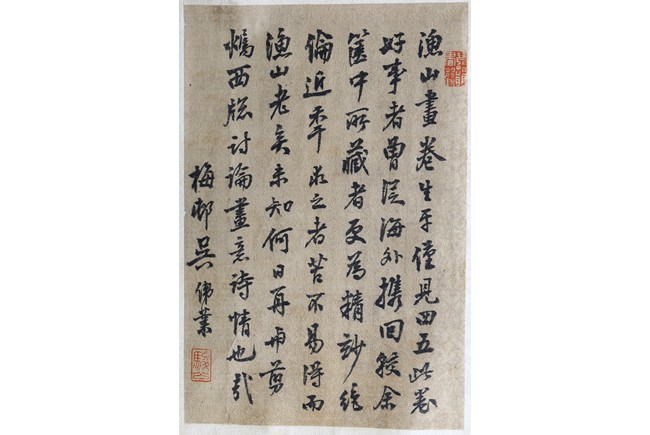 漁山畫卷生平僅見四五此卷
好事者曾從海外携回較余
篋中所藏者更為精妙絕
倫近年求之者苦不易得而
漁山老矣未知何日再與剪
燭西牕討論畫意詩情也哉
梅邨吳偉業